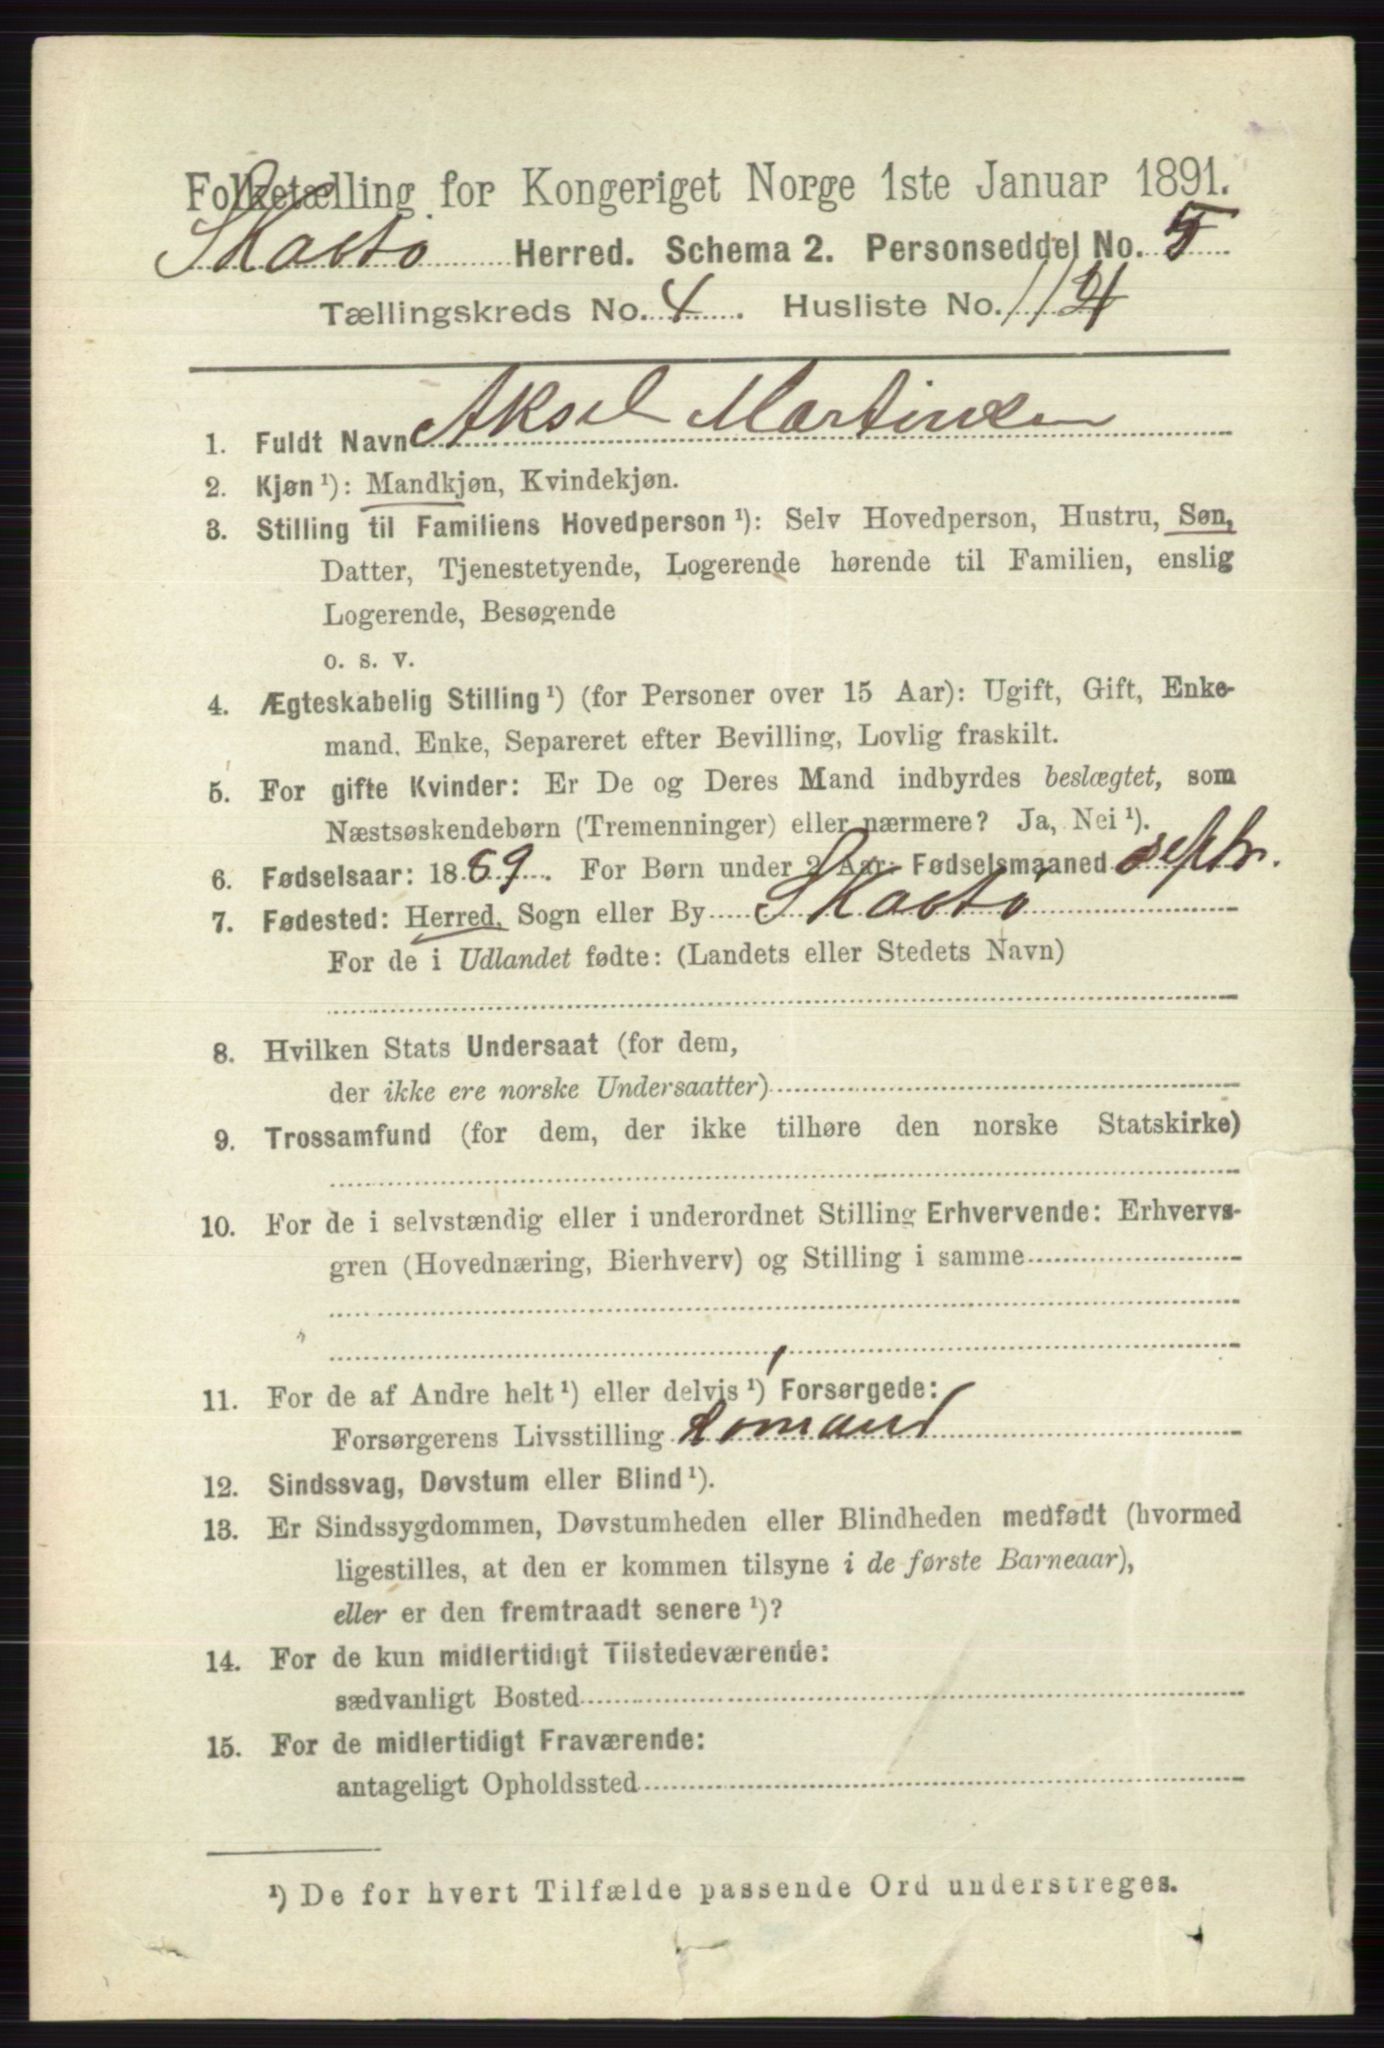 Folketælling for Kongeriget Norge 1ste Januar 1891.
Skaatø Herred. Schema 2. Personseddel No. 5
Tællingskreds No. 4. Husliste No. 114
1. Fuldt Navn Aksel Martinsen
2. Kjøn ¹): Mandkjøn, Kvindekjøn.
3. Stilling til Familiens Hovedperson ¹): Selv Hovedperson, Hustru, Søn,
Datter, Tjenestetyende, Logerende hørende til Familien, enslig
Logerende, Besøgende
o. s. v.
4. Ægteskabelig Stilling ¹) (for Personer over 15 Aar): Ugift, Gift, Enke-
mand, Enke, Separeret efter Bevilling, Lovlig fraskilt.
5. For gifte Kvinder: Er De og Deres Mand indbyrdes beslægtet, som
Næstsøskendebørn (Tremenninger) eller nærmere? Ja, Nei ¹).
6. Fødselsaar: 1889. For Børn under 2 Aar: Fødselsmaaned septr.
7. Fødested: Herred, Sogn eller By Skaatø
For de i Udlandet fødte: (Landets eller Stedets Navn)
8. Hvilken Stats Undersaat (for dem,
der ikke ere norske Undersaatter)
9. Trossamfund (for dem, der ikke tilhøre den norske Statskirke)
10. For de i selvstændig eller i underordnet Stilling Erhvervende: Erhvervs-
gren (Hovednæring, Bierhverv) og Stilling i samme
11. For de af Andre helt ¹) eller delvis ¹) Forsørgede:
Forsørgerens Livsstilling Sømand
12. Sindssvag, Døvstum eller Blind ¹).
13. Er Sindssygdommen, Døvstumheden eller Blindheden medfødt (hvormed
ligestilles, at den er kommen tilsyne i de første Barneaar),
eller er den fremtraadt senere ¹)?
14. For de kun midlertidigt Tilstedeværende:
sædvanligt Bosted
15. For de midlertidigt Fraværende:
antageligt Opholdssted
¹) De for hvert Tilfælde passende Ord understreges.